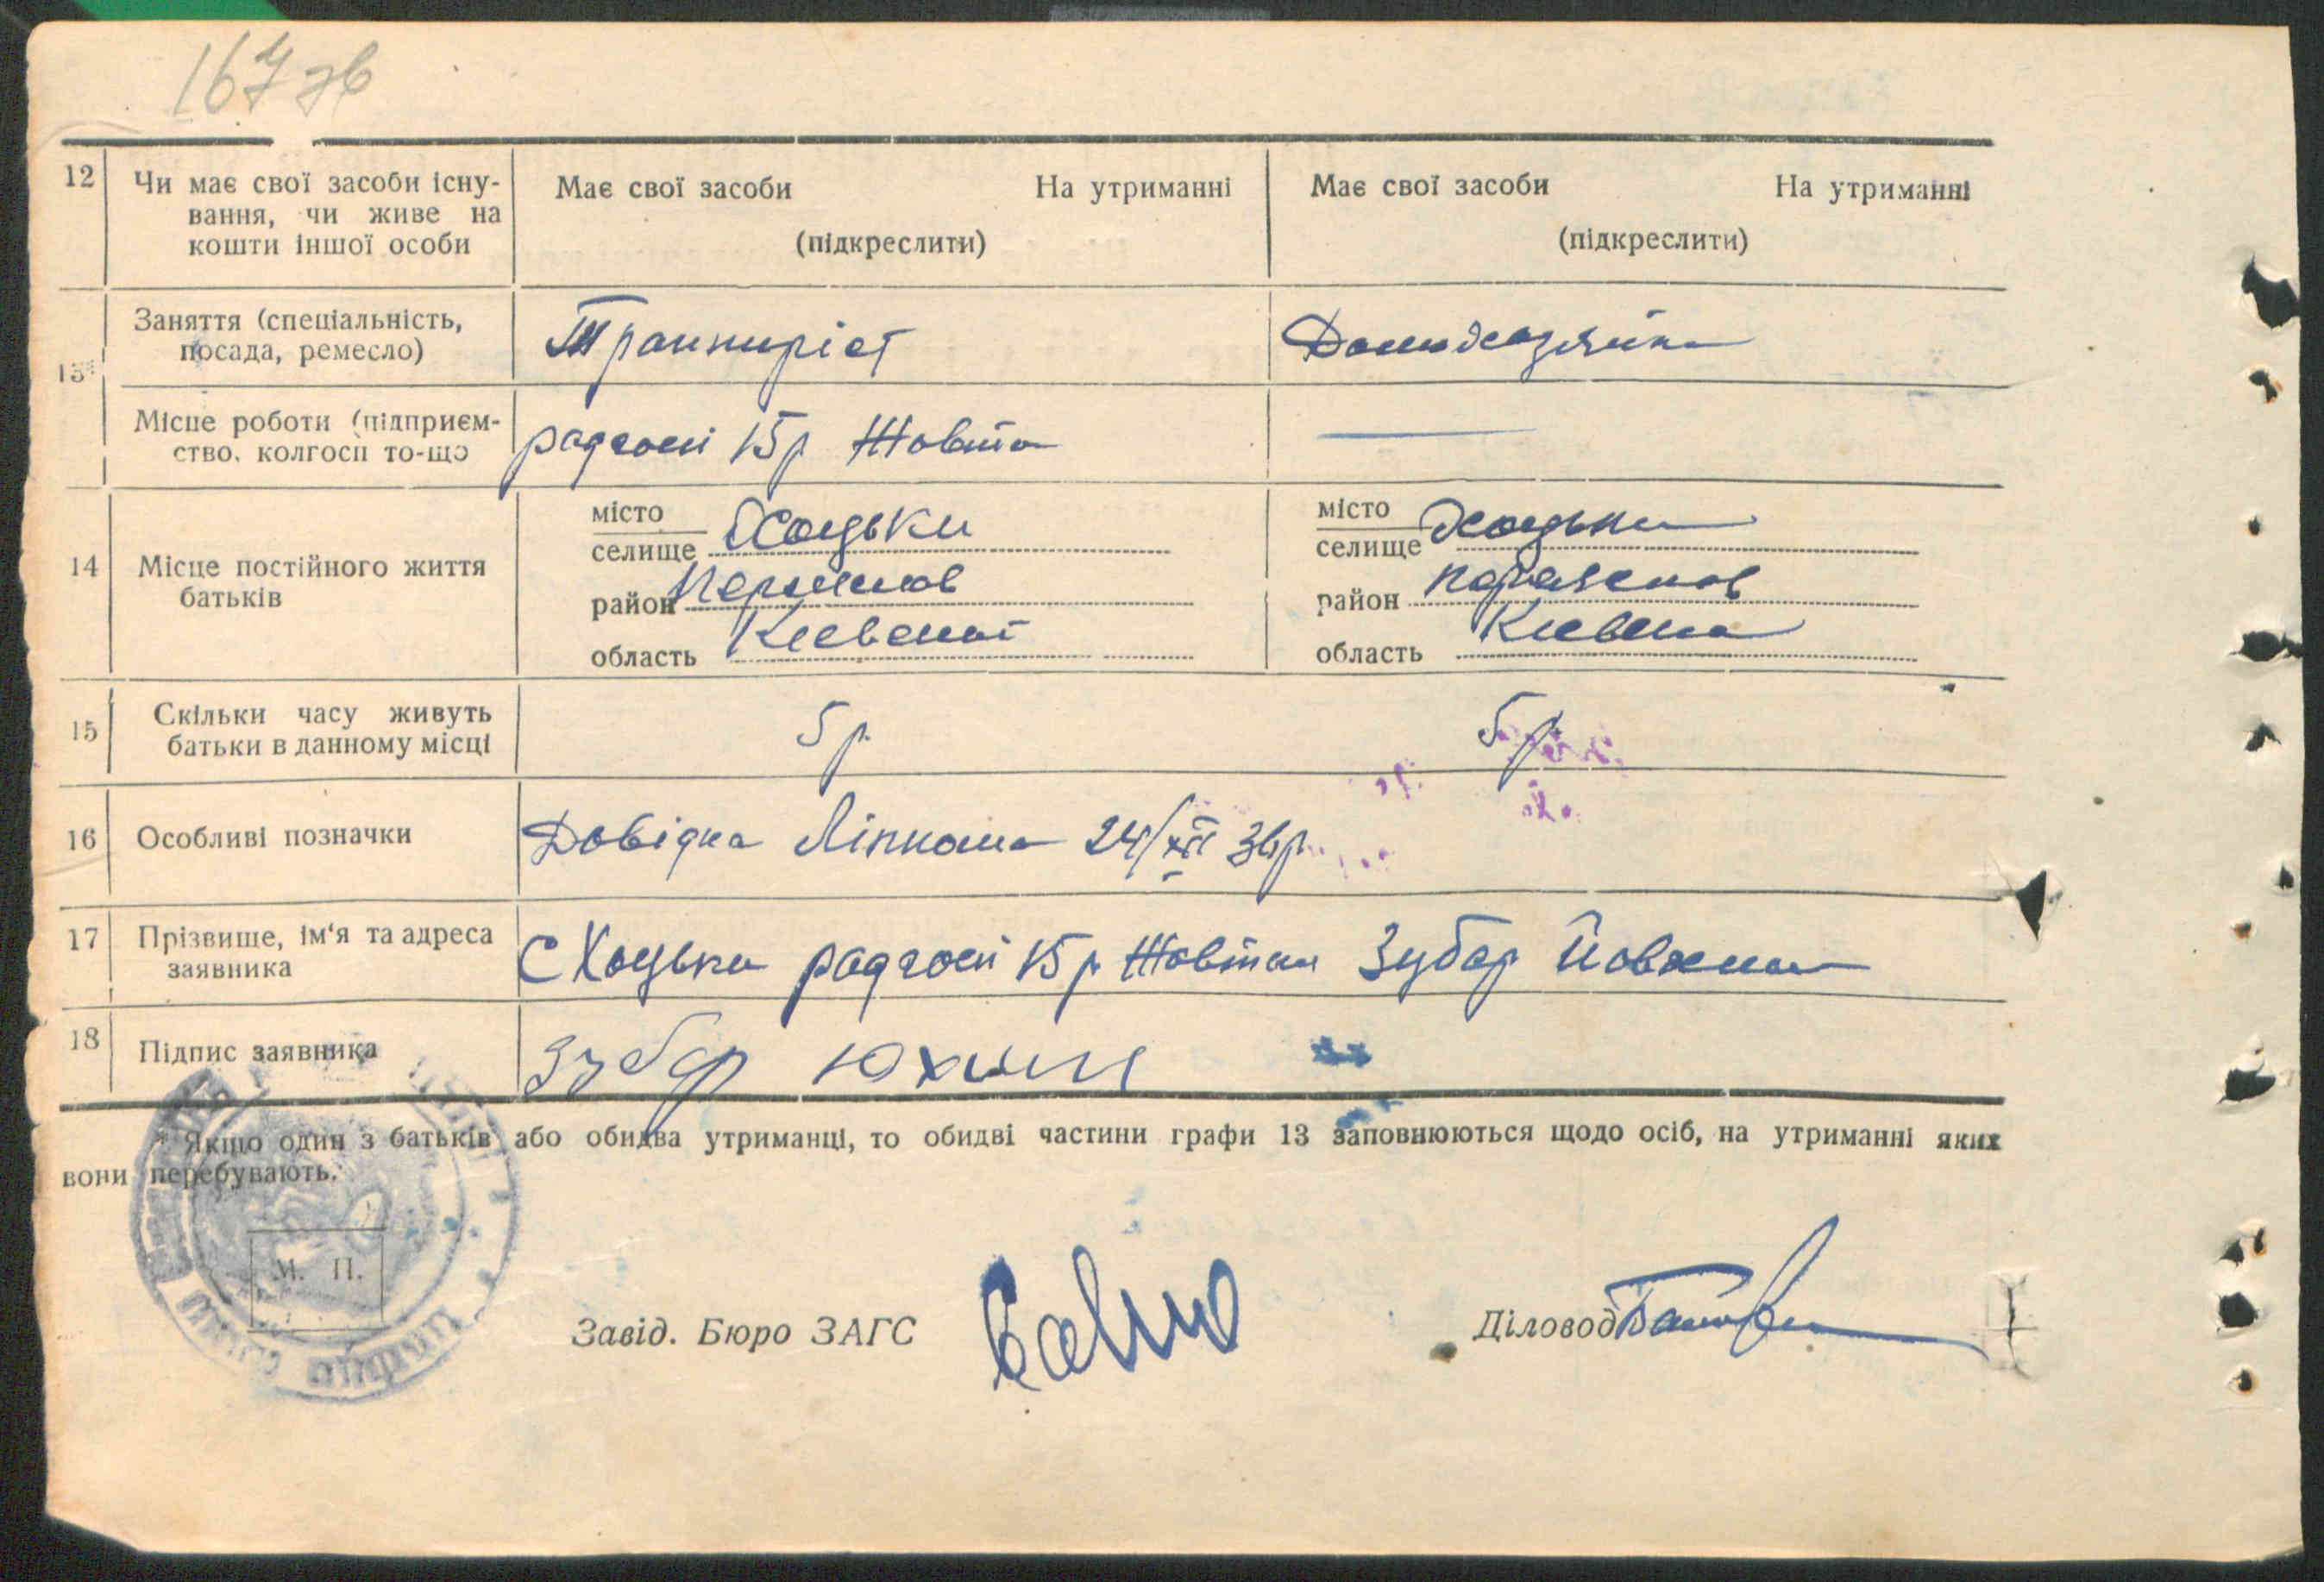 167 зв
12 Чи має свої засоби існу-
вання, чи живе на
кошти іншої особи
Має свої засоби На утриманні
(підкреслити)
Має свої засоби На утриманні
(підкреслити)
13*
Заняття (спеціальність,
посада, ремесло)
Домохазяйка
Місце роботи (підприєм-
ство, колгосп то-що
радгосп 15 р Жовтн
14 Місце постійного життя
батьків
місто
селище Хоцьки
район Переяслов
область Киевська
місто
селище Хоцьки
район Переяслов
область Киевска
15 Скільки часу живуть
батьки в данному місці
5 р.
5 р.
16 Особливі позначки
Довідка 24/XII 36р.
17 Прізвище, ім'я та адреса
заявника
с Хоцьки радгосп 15 р Жовтня Зубар
18 Підпис заявника
Зубар Юхим
* Якщо один з батьків або обидва утриманці, то обидві частини графи 13 заповнюються щодо осіб, на утриманні яких
вони перебувають.
М. П.
Завід. Бюро ЗАГС
Діловод